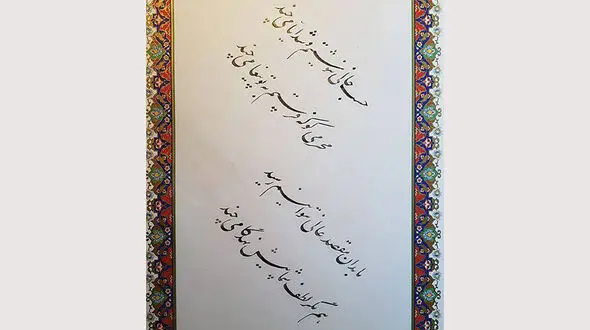 حسب حالی ننوشتیم و شد ایامی چند
محرمی کو که فرستم به تو پیغامی چند
ما بدان مقصد عالی نتوانیم رسید
هم مگر لطف شما پیش نهد گامی چند